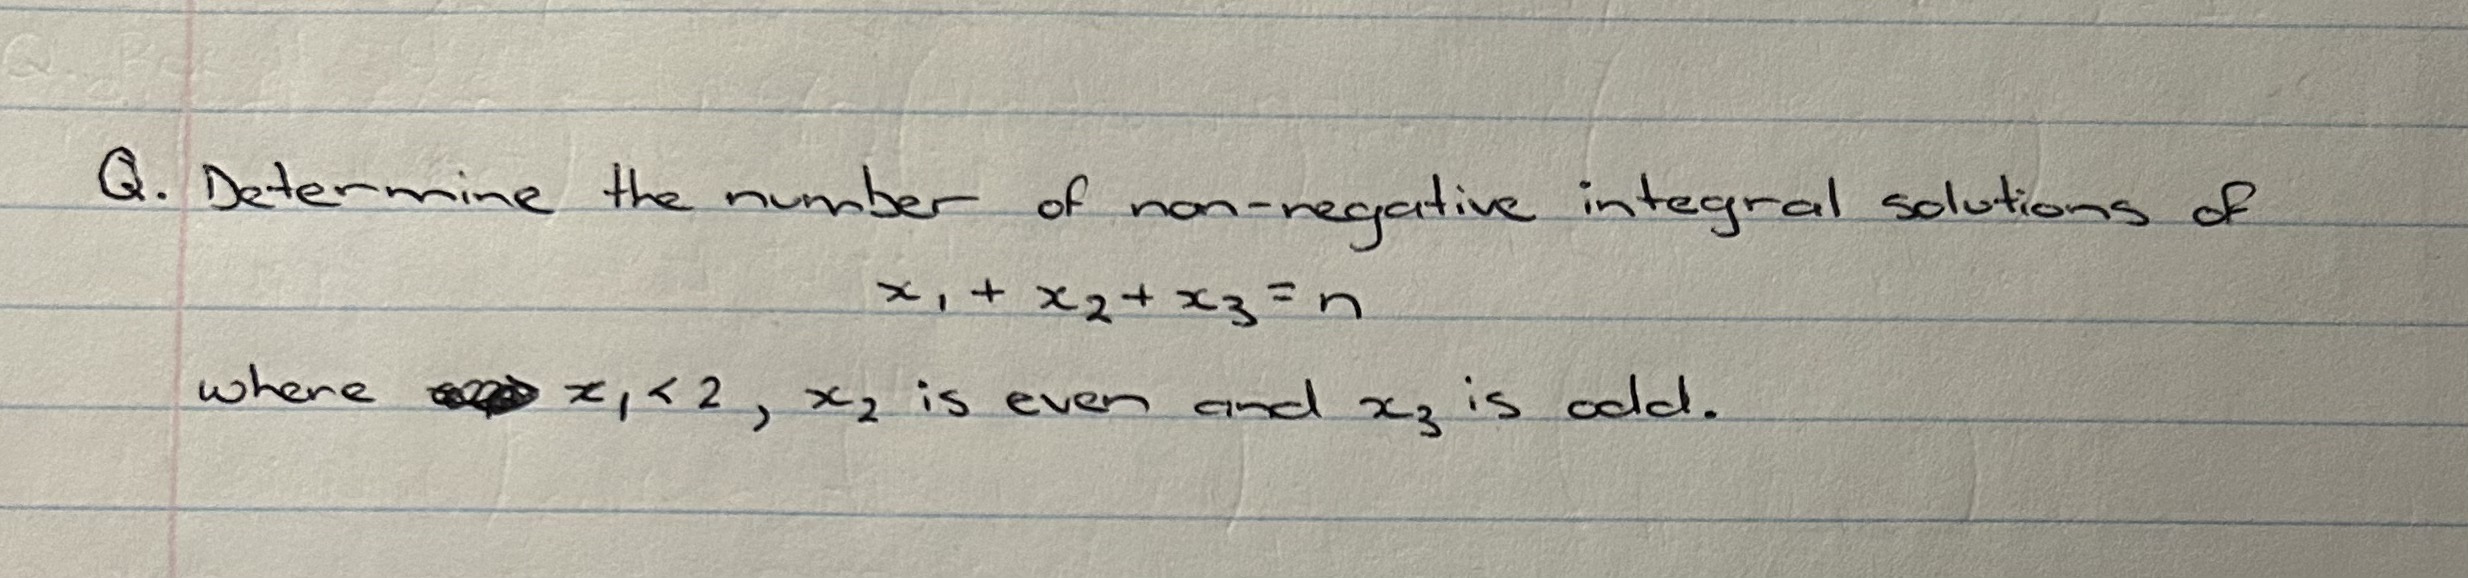 Q. Determine the number of non-negative integral solutions of
x₁ + x₂ + x₃ = n
where x₁ < 2, x₂ is even and x₃ is odd.